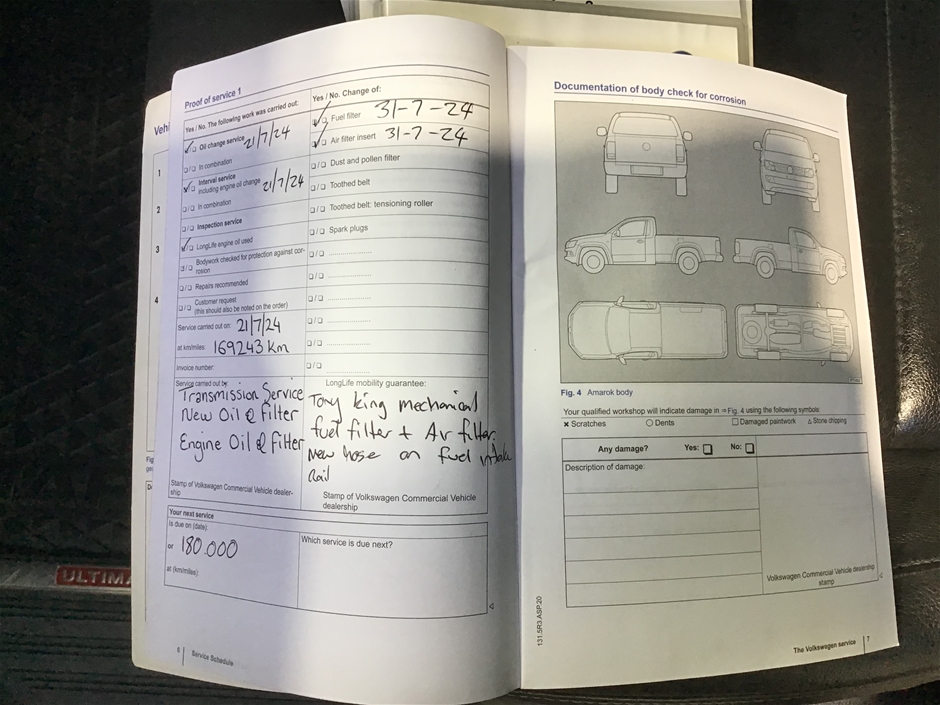 Vehi
1
2
3
4
Proof of service 1
Yes / No. The following work was carried out:
Oil change service 21/7/24
In combination
Interval service
including engine oil change 21/7/24
In combination
Inspection service
LongLife engine oil used
Bodywork checked for protection against cor-
rosion
Repairs recommended
Customer request
(this should also be noted on the order)
Service carried out on: 21/7/24
at km/miles: 169243 km
Invoice number:
Service carried out by:
Transmission Service
New Oil & Filter
Engine Oil & Filter
Stamp of Volkswagen Commercial Vehicle dealer-
ship
Yes / No. Change of:
Fuel filter 31-7-24
Air filter insert 31-7-24
Dust and pollen filter
Toothed belt
Toothed belt: tensioning roller
Spark plugs
LongLife mobility guarantee:
Tony king mechanical
fuel filter + Air filter.
New hose on fuel intake
rail
Stamp of Volkswagen Commercial Vehicle
dealership
Your next service
is due on (date):
or 180.000
at (km/miles):
Which service is due next?
6 Service Schedule
ULTIMA
Documentation of body check for corrosion
Fig. 4 Amarok body
Your qualified workshop will indicate damage in ⇒ Fig. 4 using the following symbols:
× Scratches ○ Dents □ Damaged paintwork △ Stone chipping
Any damage? Yes: No:
Description of damage:
Volkswagen Commercial Vehicle dealership
stamp
131.5R3.ASP.20
The Volkswagen service 7